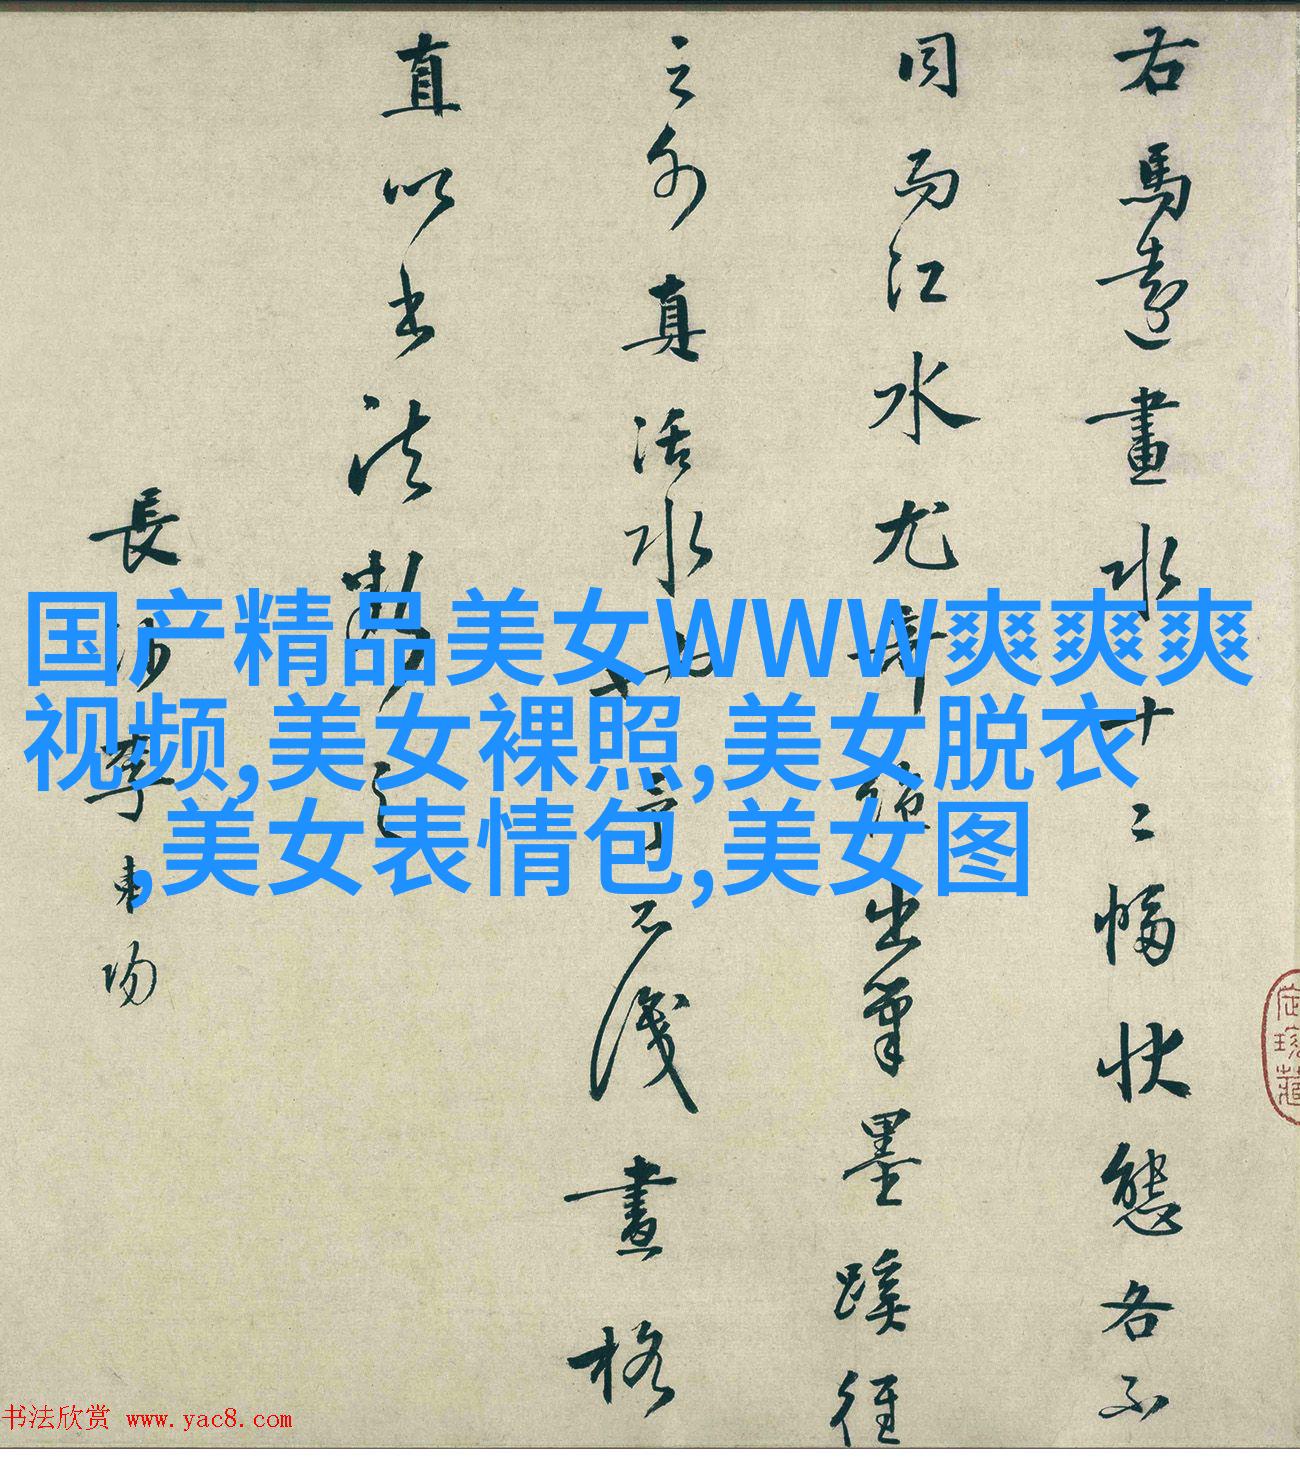 右馬遠畫水十二幅狀態各不
同而江水尤奇絕出筆墨蹊徑
之外真活水也予不識畫格
直以書法之
長沙李東陽
国产精品美女WWW爽爽爽
视频,美女裸照,美女脱衣
,美女表情包,美女图
书法欣赏 www.yac8.com
珍藏